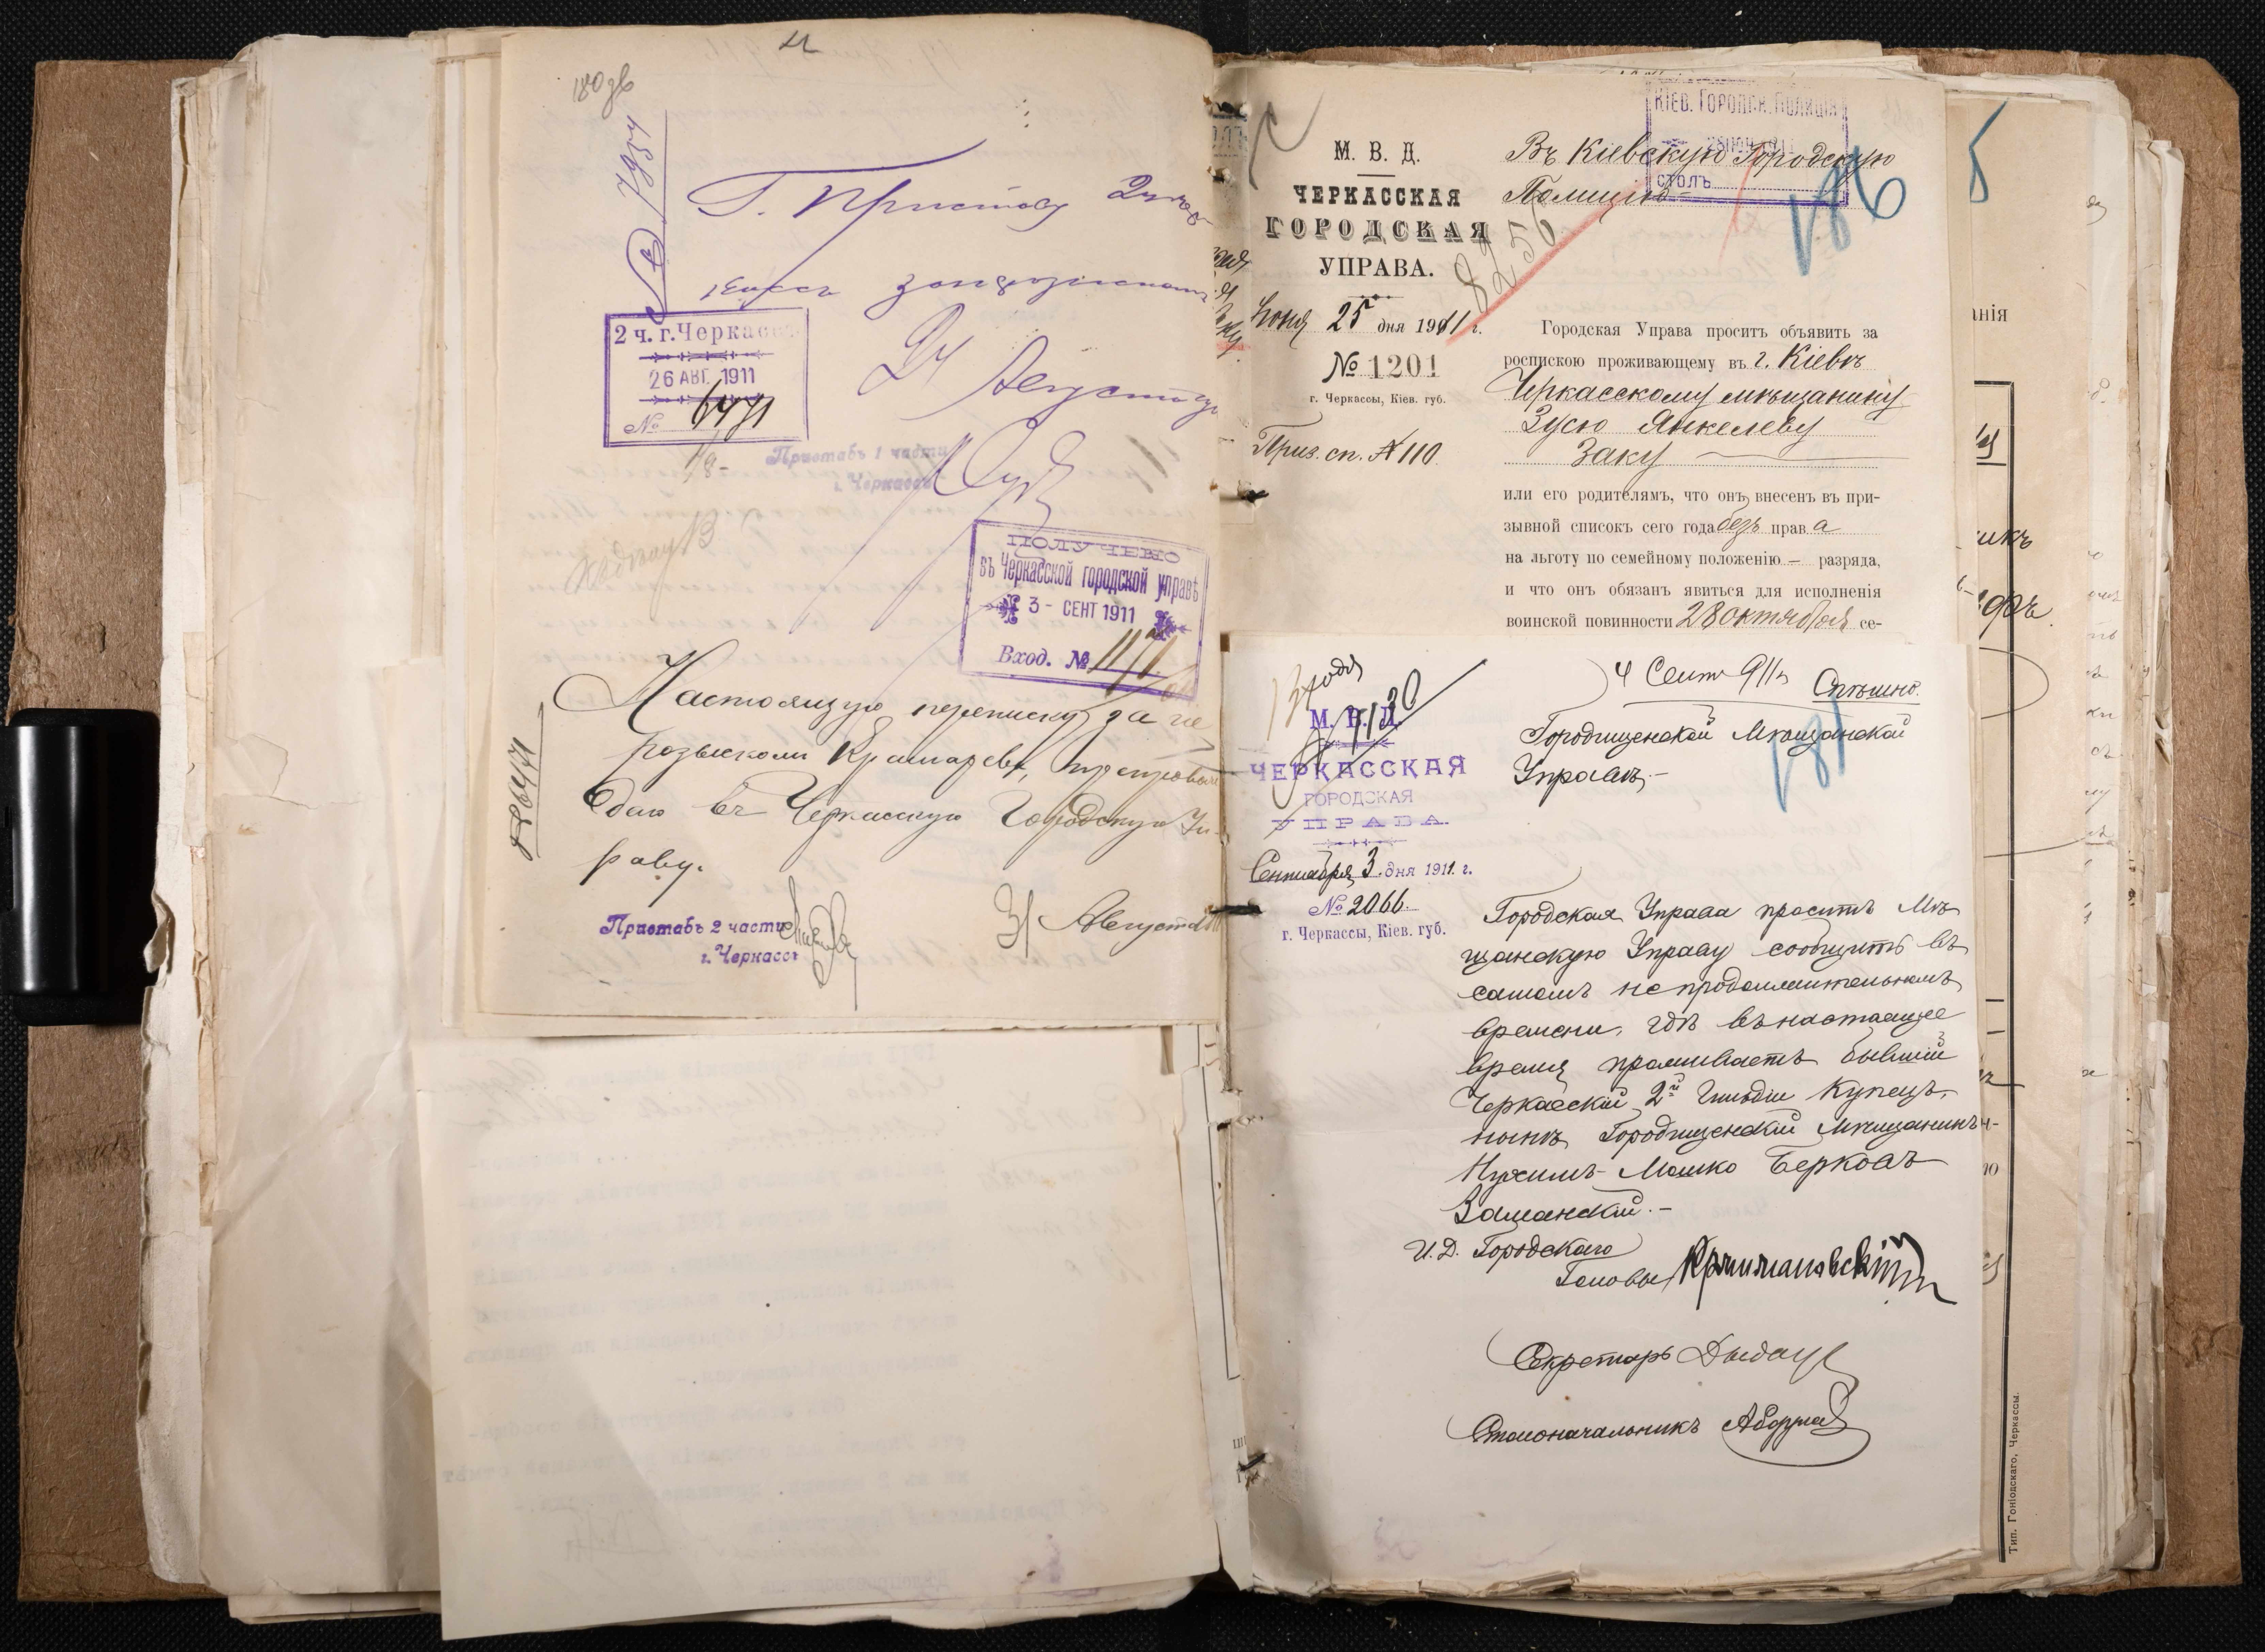 180 зв
№ 7957
Г. Приставу 2 части
2 ч. г. Черкассъ
26 АВГ. 1911
№ 6471
Августа
Приставъ 1 части
г. Черкассъ
ПОЛУЧЕНО
въ Черкасской городской управѣ
3 - СЕНТ 1911
Вход. №
Настоящую переписку за не
розыскомъ
въ Черкасскую Городскую Уп-
раву.
31 Августа
№ 6471
Приставъ 2 части
г. Черкассъ
М. В. Д.
ЧЕРКАССКАЯ
ГОРОДСКАЯ
УПРАВА.
Іюня 25 дня 1911 г.
№ 1201
г. Черкассы, Кіев. губ.
Приз. сп. № 110
КІЕВ. ГОРОДСК. ПОЛИЦІЯ
СТОЛЪ
Въ Кіевскую Городскую
Полицію
186
8250
Городская Управа проситъ объявить за
роспискою проживающему въ г. Кіевѣ
Черкасскому мѣщанину
Зусю Янкелеву
Заку
или его родителямъ, что онъ внесенъ въ при-
зывной списокъ сего года безъ права
на льготу по семейному положенію — разряда,
и что онъ обязанъ явиться для исполненія
воинской повинности 28 октября се-
4 Сент 911 г
Спѣшно.
М. В. Д.
ЧЕРКАССКАЯ
ГОРОДСКАЯ
УПРАВА.
Сентября 3 дня 1911 г.
№ 2066
г. Черкассы, Кіев. губ.
Городищенской Мѣщанской
Управѣ.-
181
Городская Управа проситъ Мѣ-
щанскую Управу сообщить въ
самомъ непродолжительномъ
времени, гдѣ въ настоящее
время проживаетъ бывшій
Черкасскій 2й Гильдіи Купецъ,
нынѣ Городищенскій Мѣщанинъ
Нухимъ-Мошко Берковъ
Заманскій.-
И. Д. Городскаго
Головы
Секретарь
Столоначальникъ
Тип. Гоніодскаго, Черкассы.